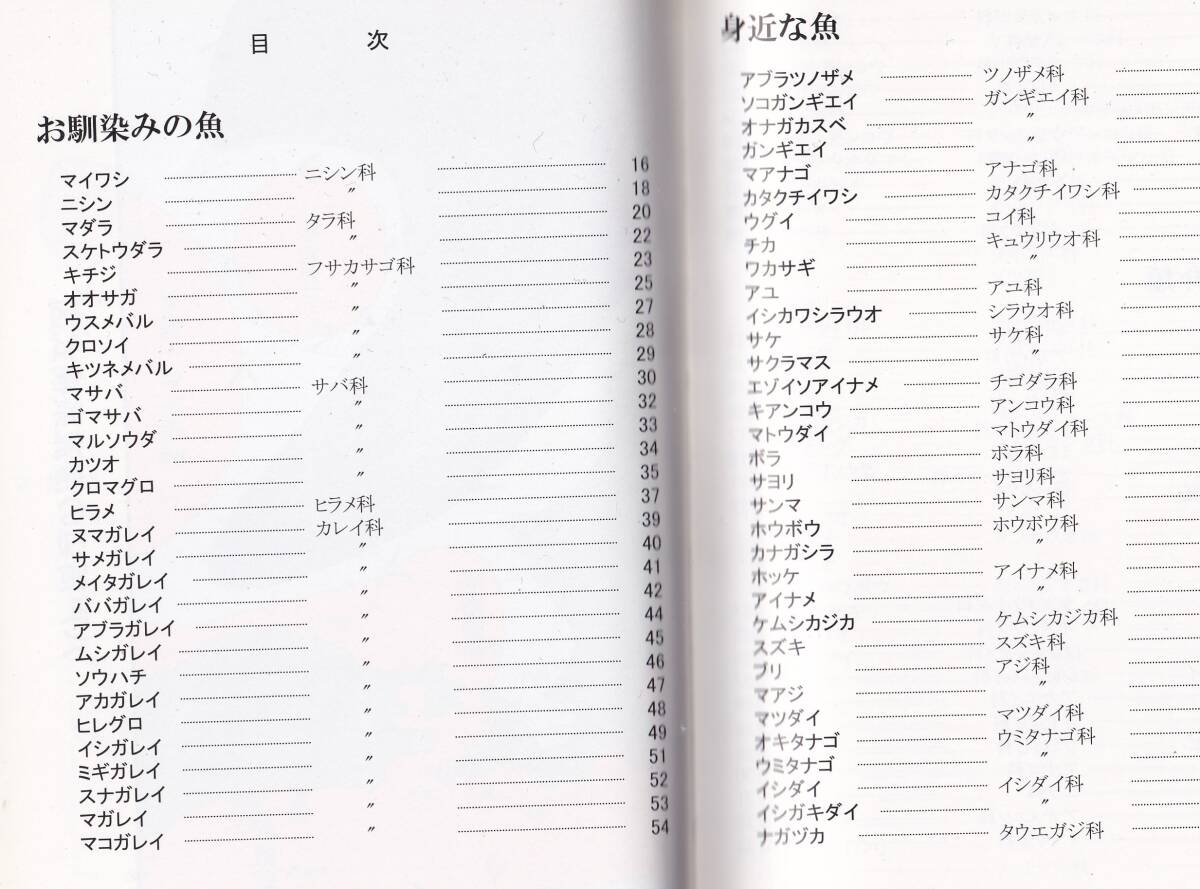 目 次
お馴染みの魚
マイワシ ニシン科 16
ニシン 〃 18
マダラ タラ科 20
スケトウダラ 〃 22
キチジ フサカサゴ科 23
オオサガ 〃 25
ウスメバル 〃 27
クロソイ 〃 28
キツネメバル 〃 29
マサバ サバ科 30
ゴマサバ 〃 32
マルソウダ 〃 33
カツオ 〃 34
クロマグロ 〃 35
ヒラメ ヒラメ科 37
ヌマガレイ カレイ科 39
サメガレイ 〃 40
メイタガレイ 〃 41
ババガレイ 〃 42
アブラガレイ 〃 44
ムシガレイ 〃 45
ソウハチ 〃 46
アカガレイ 〃 47
ヒレグロ 〃 48
イシガレイ 〃 49
ミギガレイ 〃 51
スナガレイ 〃 52
マガレイ 〃 53
マコガレイ 〃 54
身近な魚
アブラツノザメ ツノザメ科
ソコガンギエイ ガンギエイ科
オナガカスベ 〃
ガンギエイ 〃
マアナゴ アナゴ科
カタクチイワシ カタクチイワシ科
ウグイ コイ科
チカ キュウリウオ科
ワカサギ 〃
アユ アユ科
イシカワシラウオ シラウオ科
サケ サケ科
サクラマス 〃
エゾイソアイナメ チゴダラ科
キアンコウ アンコウ科
マトウダイ マトウダイ科
ボラ ボラ科
サヨリ サヨリ科
サンマ サンマ科
ホウボウ ホウボウ科
カナガシラ 〃
ホッケ アイナメ科
アイナメ 〃
ケムシカジカ ケムシカジカ科
スズキ スズキ科
ブリ アジ科
マアジ 〃
マツダイ マツダイ科
オキタナゴ ウミタナゴ科
ウミタナゴ 〃
イシダイ イシダイ科
イシガキダイ 〃
ナガヅカ タウエガジ科